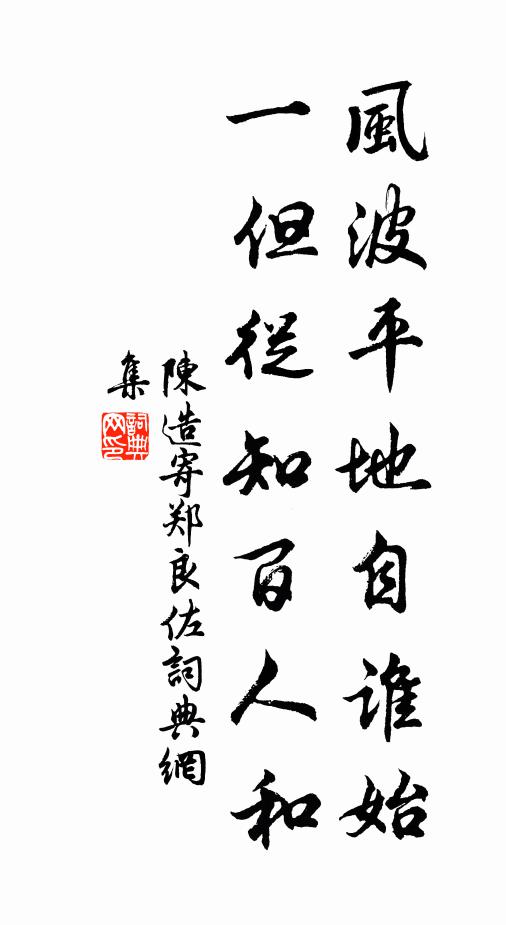 風波平地自誰始
一但從知百人和
陳造寄郑良佐詞典網
集
詞典
网印